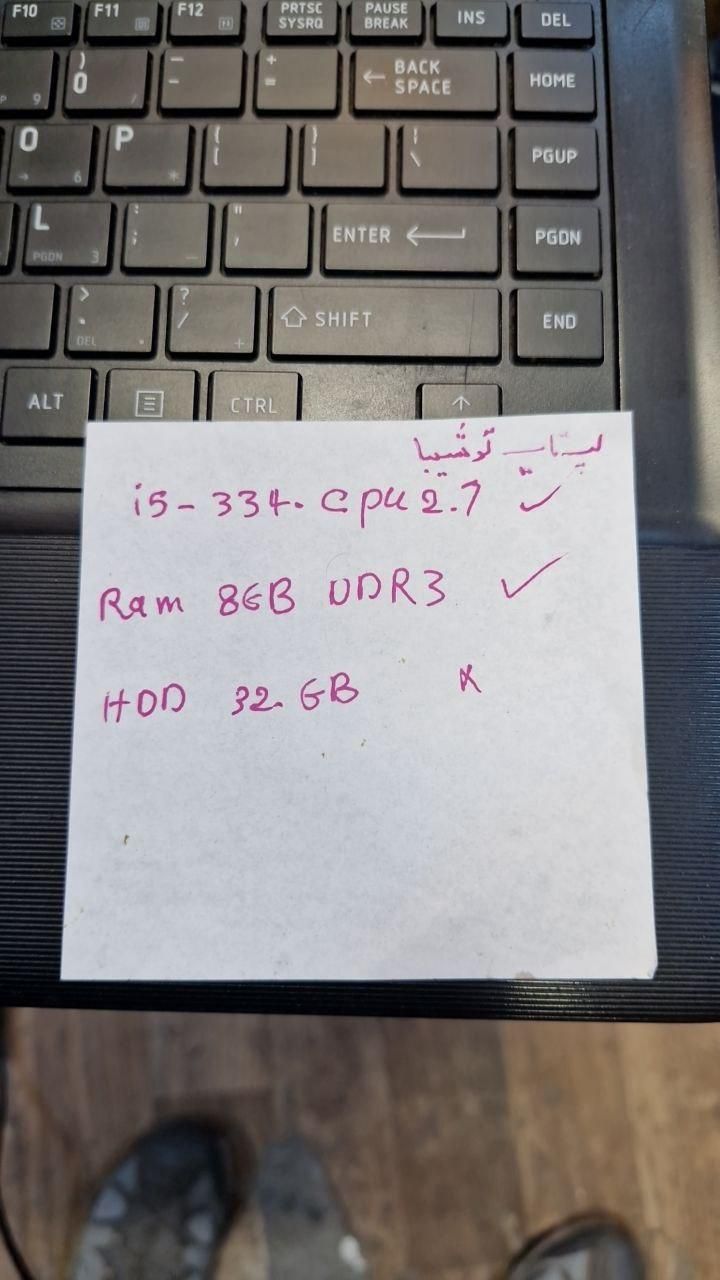 F10 F11 F12 PRTSC SYSRQ PAUSE BREAK INS DEL
P 9 ) 0 / _ - + = ← BACK SPACE HOME
O → 6 P * { [ } ] | \ PGUP
L PGDN 3 : ; " ' ENTER PGDN
> . DEL ? / + SHIFT END
ALT CTRL ↑
لپ تاپ توشیبا
i5-334. CPU 2.7 ✓
Ram 8GB DDR3 ✓
HDD 32. GB x